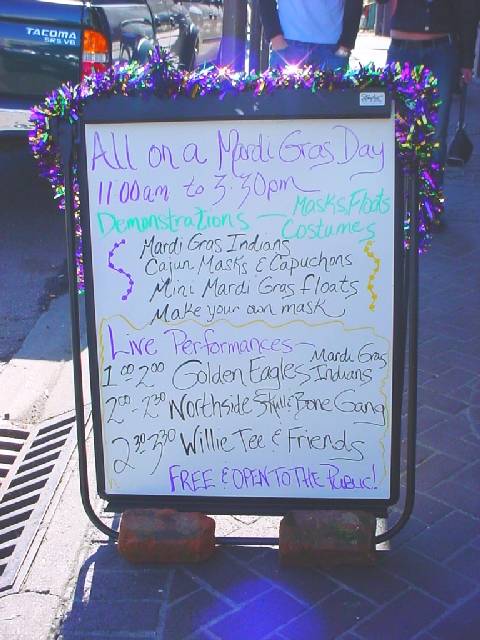 TACOMA
SR5 V6
All on a Mardi Gras Day
11:00am to 3:30pm
Demonstrations — Masks, Floats
Costumes
Mardi Gras Indians
Cajun Masks & Capuchons
Mini Mardi Gras floats
Make your own mask
Live Performances —
1:00-2:00 Golden Eagles Mardi Gras Indians
2:00-2:30 Northside Skull & Bone Gang
2:30-3:30 Willie Tee & Friends
FREE & OPEN TO THE Public!